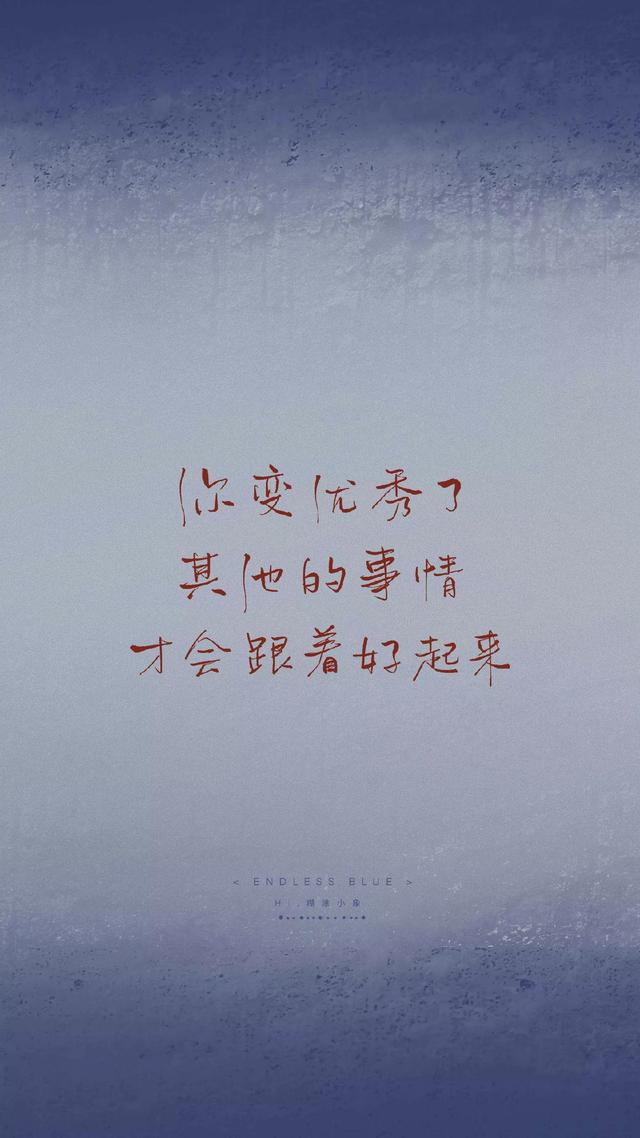 你变优秀了
其他的事情
才会跟着好起来
< ENDLESS BLUE >
Hi,糊涂小象